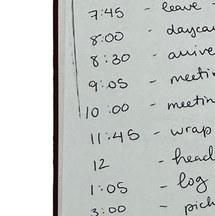 7:45 - leave
8:00 - dayca
8:30 - arrive
9:05 - meetin
10:00 - meetin
11:45 - wrap
12 - head
1:05 - log
3:00 - pich